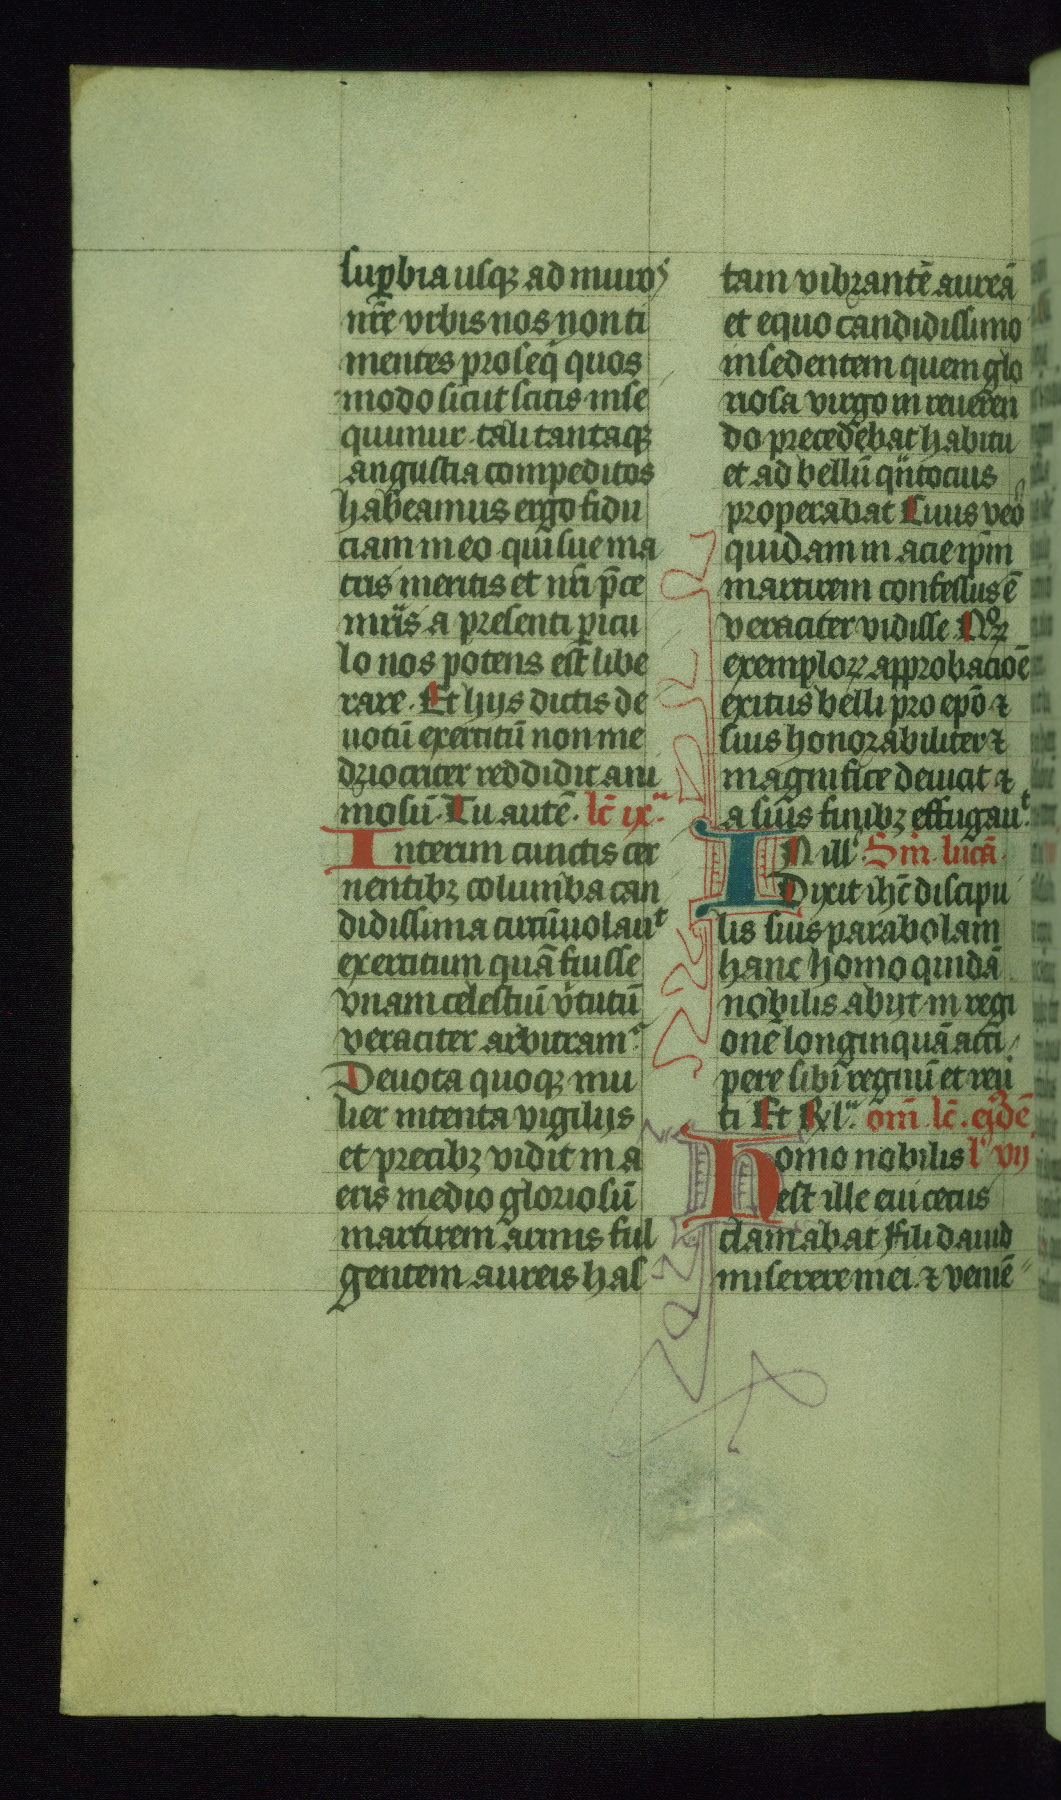 sup̱bia usqꝫ ad muros
nr̄e vrbis nos non ti
mentes proseq̄ quos
modo sicut scitis inse
quimur tali tantaqꝫ
angustia compeditos
habeamus ergo fidu
ciam in eo qui sue ma
tris meritis et nr̄i p̄ce
a presenti p̱icu
lo nos potens est libe
rare. Et hijs dictis de
uotū exercitū non me
driocriter reddidit ani
mosū. Tu autē. lc̄ ix.ᵃ
Interim cunctis cer
nentibꝫ columba can
didissima circūuolauᵗ
exercitum quā fuisse
vnam celestiū v̄tutū
veraciter arbitram᷒
Deuota quoqꝫ mu
lier intenta vigilijs
et precibꝫ vidit in a
eris medio gloriosū
martirem armis ful
gentem aureis has
tam vibrantē aureā
et equo candidissimo
insedentem quem glo
riosa virgo in reueren
do precedebat habitu
et ad bellū qͣntocius
properabat Cuius veͦ
quidam in acie ip̄m
martirem confessus ē
veraciter vidisse Noꝝ
exemploꝝ approbacioē
exitus belli pro ep̄o ⁊
suis honorabiliter ⁊
magnifice deuicit ⁊
a suis finibꝫ effugauᵗ
IN ill̄ Sm̄. lucā.
Dixit ih̄c discipu
lis suis parabolam
hanc Homo quidā
nobilis abijt in regi
onē longinquā acci
pere sibi regnū et reū
ti Et Rl̄ᵃ om̄. lc̄. eiᵈdē
Homo nobilis lᵒ vij
est ille cui cecus
clamabat Fili dauid
miserere mei. ⁊ veniē